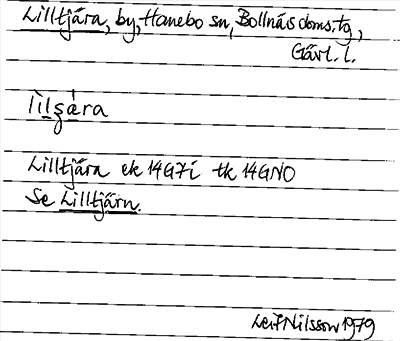 Lilltjära, by, Hanebo sn, Bollnäs doms.tg,
Gävl. l.
Lilltjära ek 14G7i tk 14GNO
Se Lilltjärn.
Leif Nilsson 1979